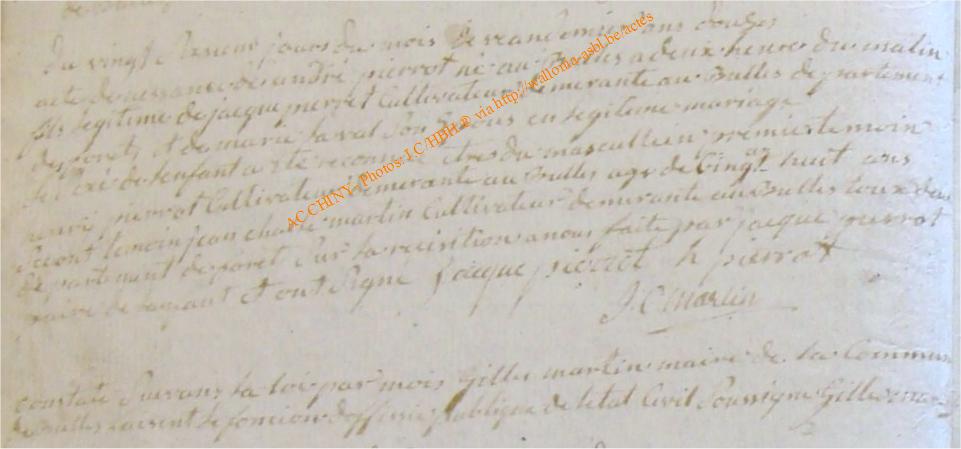 Du vingt jours du mois de veandemiere ans douze
acte de nessance de andré pierrot né au Bulles a deux heure du matin
fils legitime de jacque pierrot Cultivateur demerante au Bulles departement
de foret, et de marie laval son Epous en legitime mariage
le sexe de lenfant a été reconue etre du masculiein premie temoin
henri pierrot Cultivateur demerante au Bulles age de Vingt huit ans
second temoin jean charle martin Cultivateur demerante au Bulles toux deux
departement de foret sur la requisition a nous faite par jacque pierrot
paire de lenfant et ont signe jacque pierrot h pierrot
J. C Martin
constate suivans la loi par mois Gilles martin maire de la Commun
de Bulles faisent le foncion dofficie publique de letat Civil soussigne Gille martin
AC CHINY - Photos: J.C /HBH @ via http://wallonia-asbl.be/actes